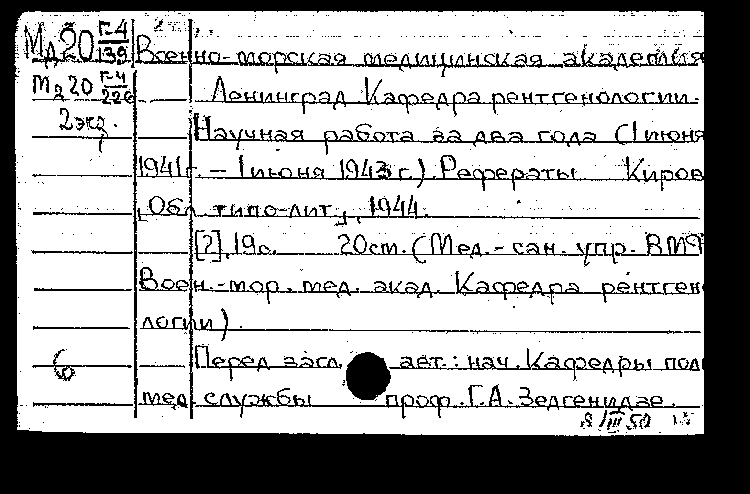 Мд20 Г-4/139 Военно-морская медицинская академия
Мд20 Г-4/226 Ленинград Кафедра рентгенологии.
2экз. Научная работа за два года (1 июня
1941г. – 1 июня 1943г.) Рефераты Киров
[Обл. типо-лит.], 1944.
[2], 19с. 20см. (Мед.-сан. упр. ВМФ
Воен.-мор. мед. акад. Кафедра рентген
логии).
6 Перед загл. авт.: нач. Кафедры пол
мед. службы проф. Г.А. Зедгенидзе.
8/III 50